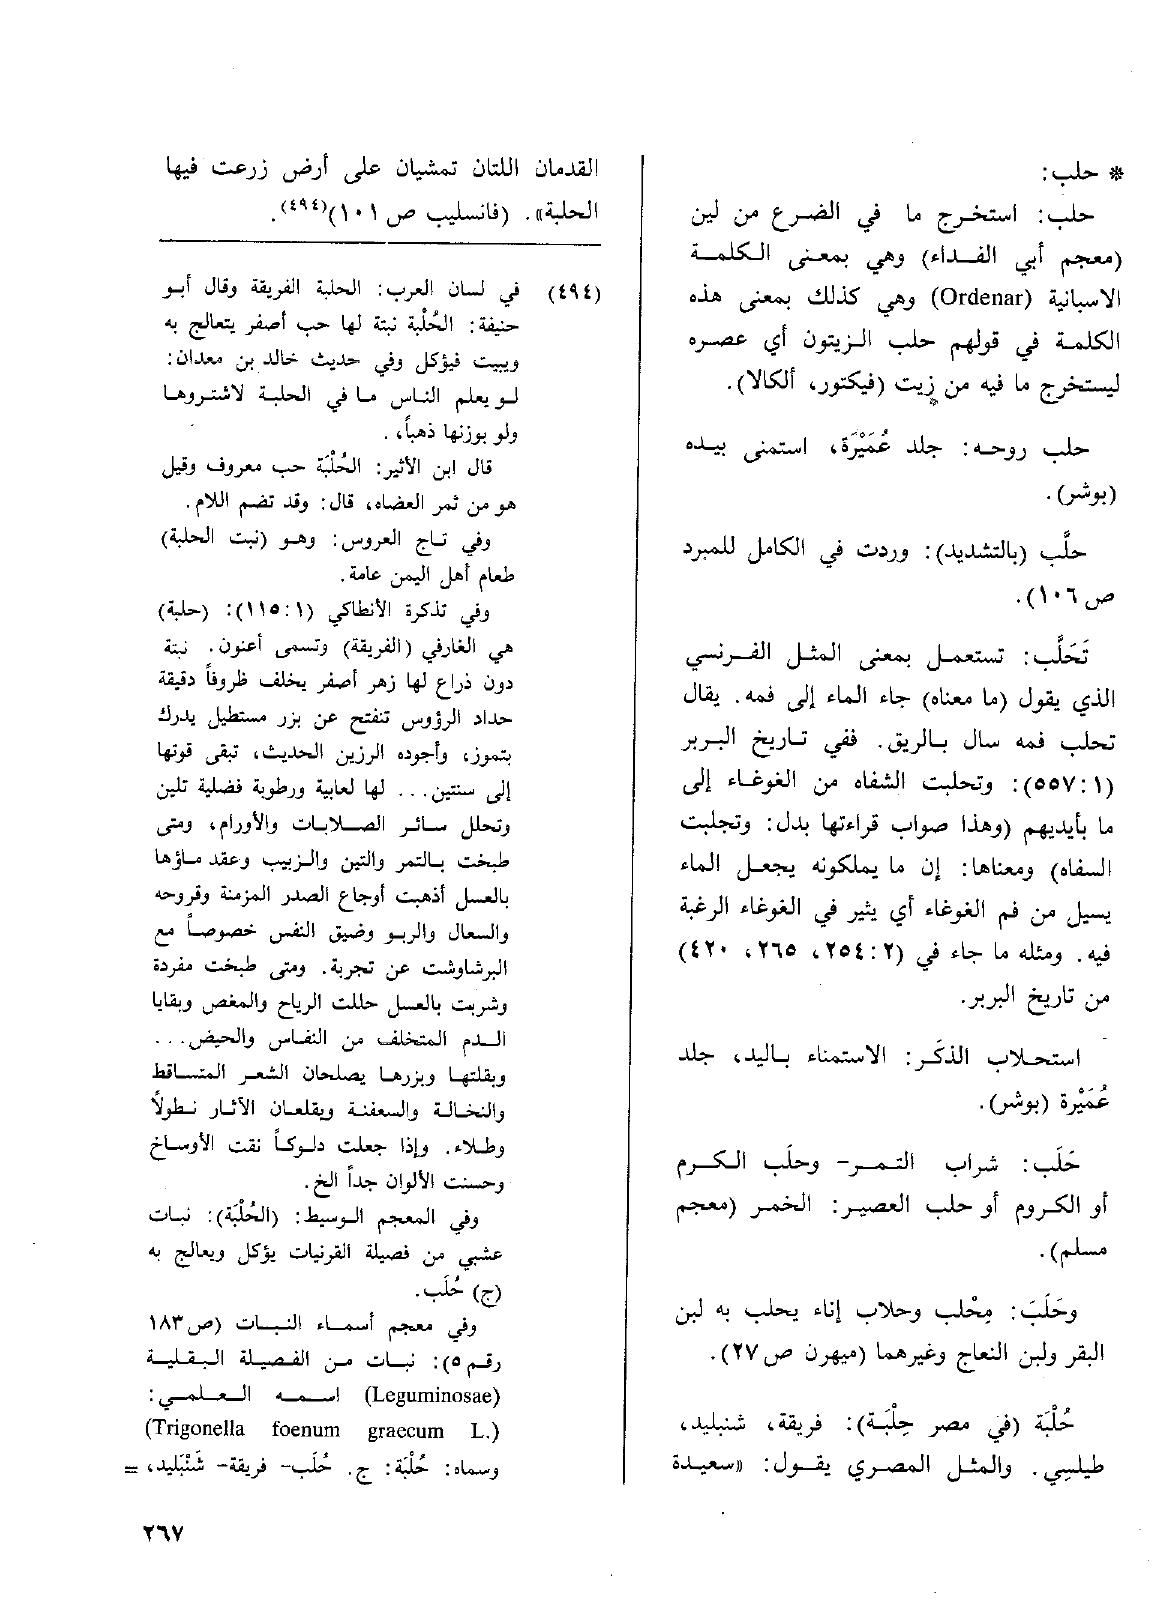 * حلب:
حلب: استخرج ما في الضرع من لبن
(معجم أبي الفداء) وهي بمعنى الكلمة
الاسبانية (Ordenar) وهي كذلك بمعنى هذه
الكلمة في قولهم حلب الزيتون أي عصره
ليستخرج ما فيه من زيت (فيكتور، ألكالا).
حلب روحه: جلد عُمَيْرَة، استمنى بيده
(بوشر).
حلَّب (بالتشديد): وردت في الكامل للمبرد
ص ١٠٦).
تَحَلَّب: تستعمل بمعنى المثل الفرنسي
الذي يقول (ما معناه) جاء الماء إلى فمه. يقال
تحلب فمه سال بالريق. ففي تاريخ البربر
(١: ٥٥٧): وتحلبت الشفاه من الغوغاء إلى
ما بأيديهم (وهذا صواب قراءتها بدل: وتجلبت
السفاه) ومعناها: إن ما يملكونه يجعل الماء
يسيل من فم الغوغاء أي يثير في الغوغاء الرغبة
فيه. ومثله ما جاء في (٢: ٢٥٤، ٢٦٥، ٤٢٠)
من تاريخ البربر.
استحلاب الذكَر: الاستمناء باليد، جلد
عُمَيْرة (بوشر).
حَلَب: شراب التمر- وحلَب الكرم
أو الكروم أو حلب العصير: الخمر (معجم
مسلم).
وحَلَبَ: مِحْلب وحلاب إناء يحلب به لبن
البقر ولبن النعاج وغيرهما (ميهرن ص ٢٧).
حُلْبَة (في مصر حِلْبَة): فريقة، شنبليد،
طيلسي. والمثل المصري يقول: «سعيدة
القدمان اللتان تمشيان على أرض زرعت فيها
الحلبة». (فانسليب ص ١٠١)(٤٩٤).
(٤٩٤) في لسان العرب: الحلبة الفريقة وقال أبو
حنيفة: الحُلْبة نبتة لها حب أصفر يتعالج به
ويبيت فيؤكل وفي حديث خالد بن معدان:
لو يعلم الناس ما في الحلبة لاشتروها
ولو بوزنها ذهباً، .
قال ابن الأثير: الحُلْبَة حب معروف وقيل
هو من ثمر العضاه، قال: وقد تضم اللام.
وفي تاج العروس: وهو (نبت الحلبة)
طعام أهل اليمن عامة.
وفي تذكرة الأنطاكي (١: ١١٥): (حلبة)
هي الغارفي (الفريقة) وتسمى أعنون. نبتة
دون ذراع لها زهر أصفر يخلف ظروفاً دقيقة
حداد الرؤوس تنفتح عن بزر مستطيل يدرك
بتموز، وأجوده الرزين الحديث، تبقى قوتها
إلى سنتين... لها لعابية ورطوبة فضلية تلين
وتحلل سائر الصلابات والأورام، ومتى
طبخت بالتمر والتين والزبيب وعقد ماؤها
بالعسل أذهبت أوجاع الصدر المزمنة وقروحه
والسعال والربو وضيق النفس خصوصاً مع
البرشاوشت عن تجربة. ومتى طبخت مفردة
وشربت بالعسل حللت الرياح والمغص وبقايا
الدم المتخلف من النفاس والحيض...
وبقلتها وبزرها يصلحان الشعر المتساقط
والنخالة والسعفة ويقلعان الآثار نطولاً
وطلاء. وإذا جعلت دلوكاً نقت الأوساخ
وحسنت الألوان جداً الخ.
وفي المعجم الوسيط: (الحُلْبَة): نبات
عشبي من فصيلة القرنيات يؤكل ويعالج به
(ج) حُلَب.
وفي معجم أسماء النبات (ص ١٨٣
رقم ٥): نبات من الفصيلة البقلية
(Leguminosae) اسمه العلمي:
(Trigonella foenum graecum L.)
وسماه: حُلْبَة: ج. حُلَب- فريقة- شَنْبَليد، =
٢٦٧